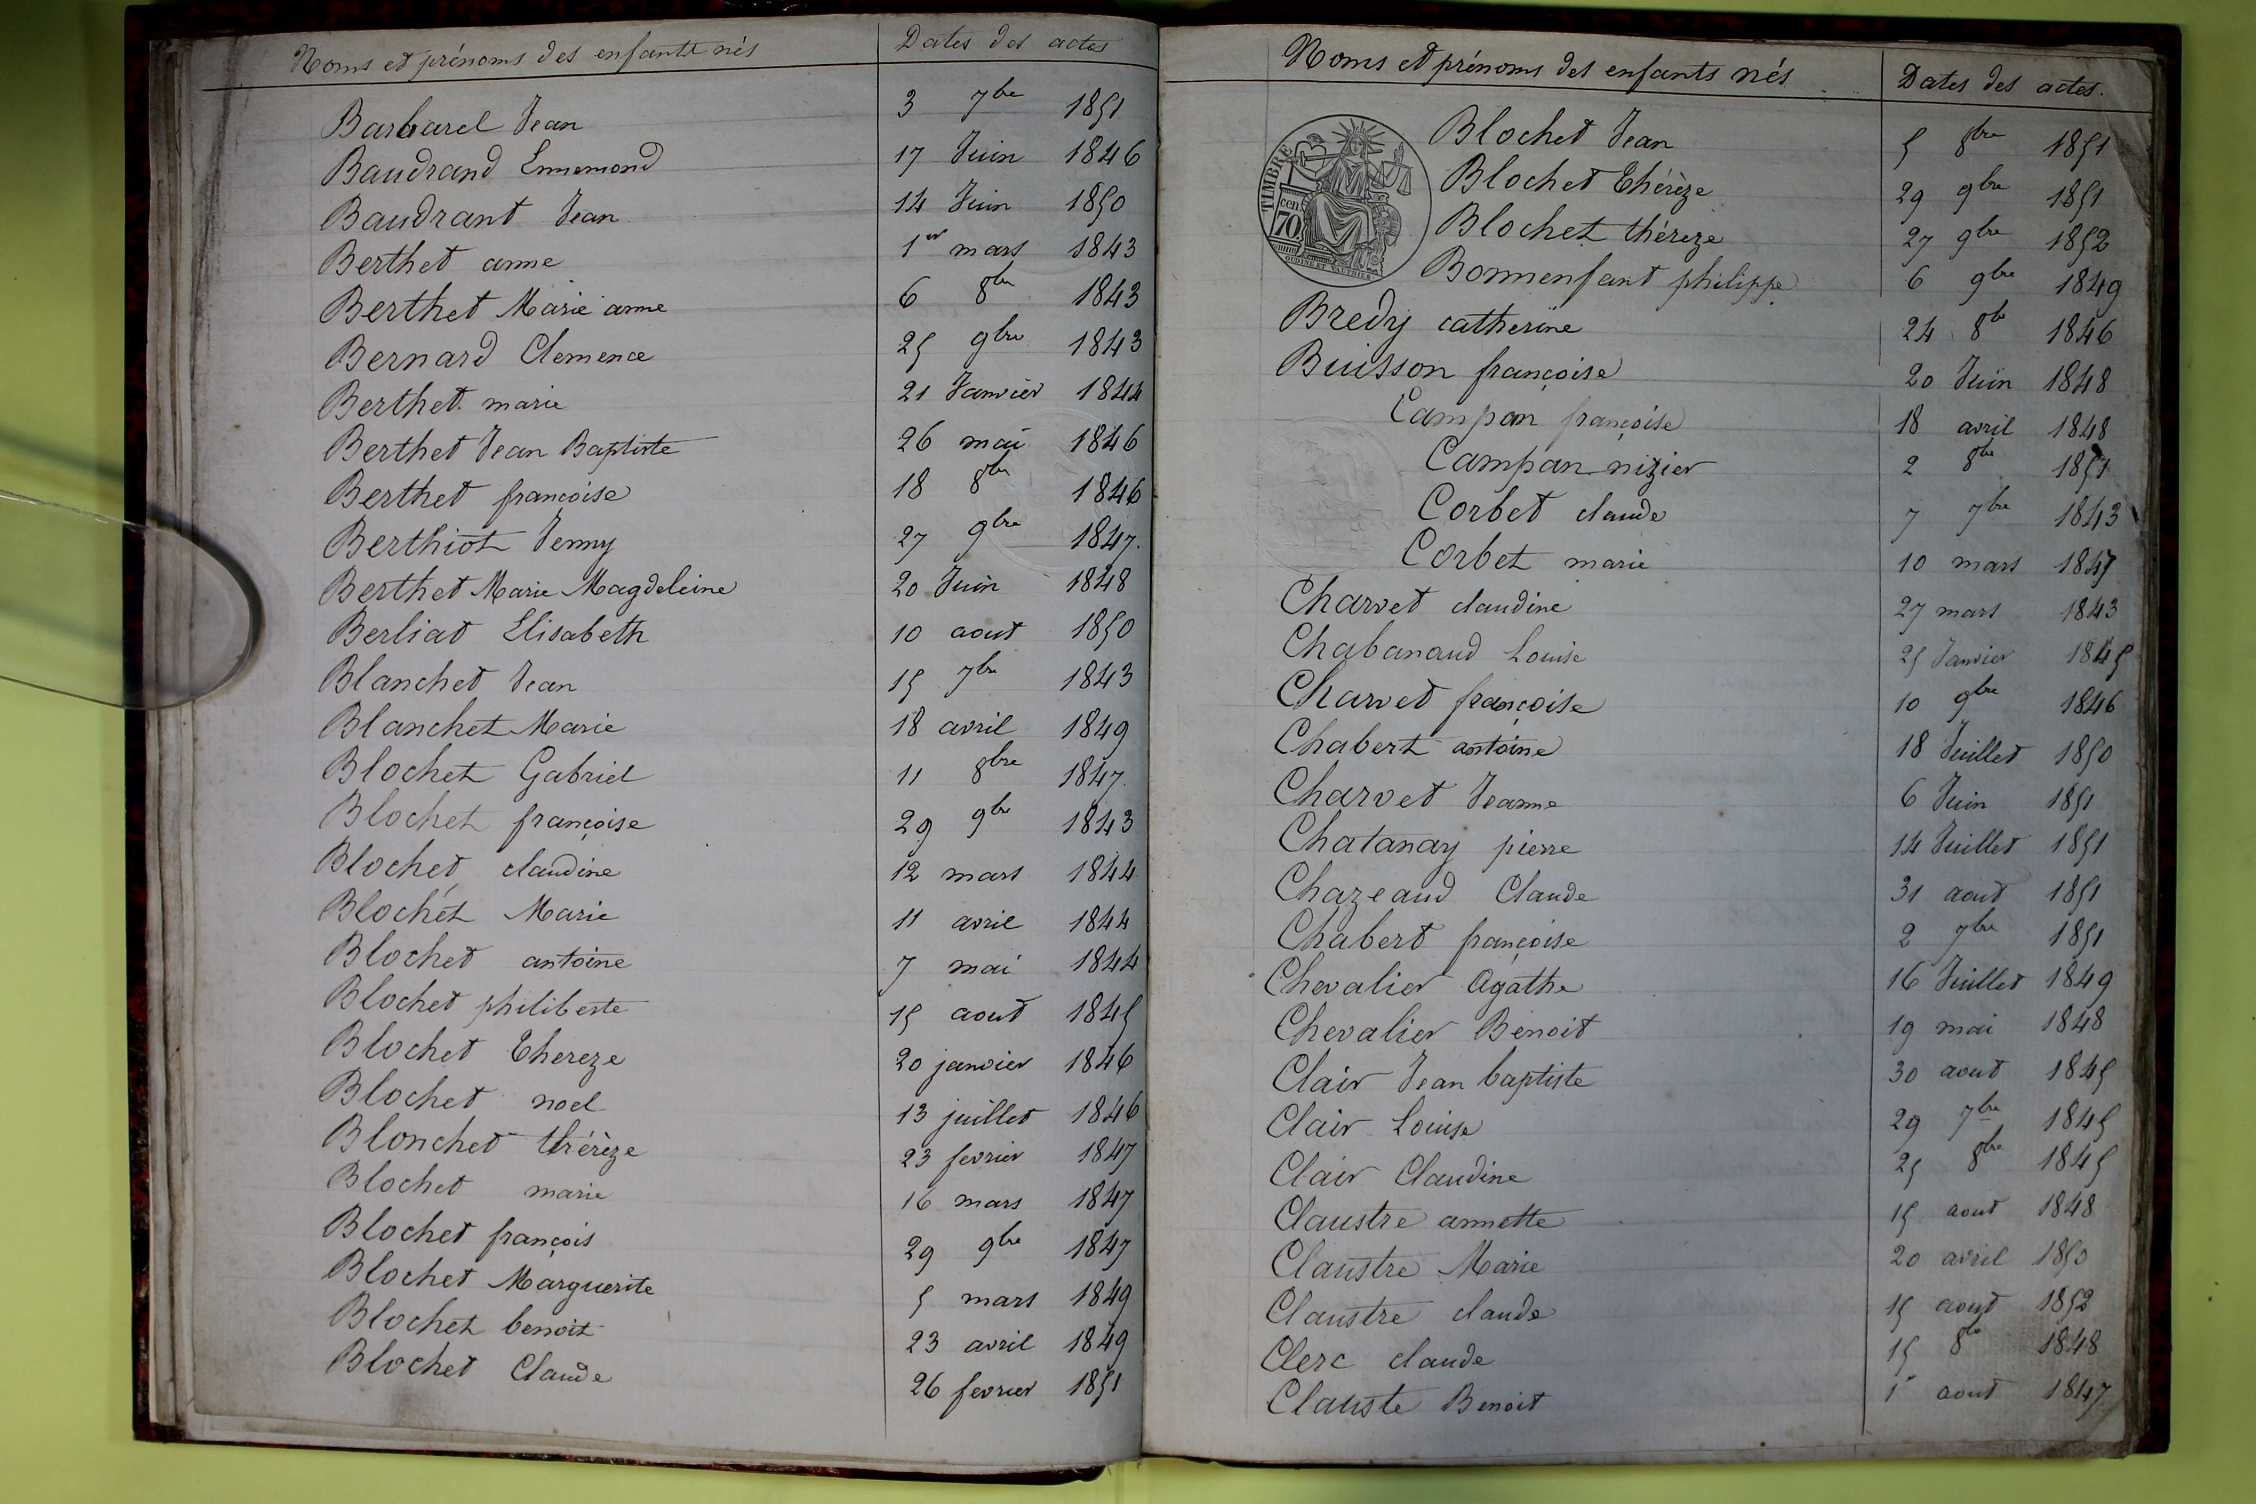 Noms et prénoms des enfants nés Dates des actes
Barbarel Jean 3 7bre 1851
Baudrand Ennemond 17 Juin 1846
Baudrant Jean 14 Juin 1850
Berthet anne 1er mars 1843
Berthet Marie anne 6 8bre 1843
Bernard Clemence 25 9bre 1843
Berthet marie 21 Janvier 1844
Berthet Jean Baptiste 26 mai 1846
Berthet françoise 18 8bre 1846
Berthiot Jenny 27 9bre 1847.
Berthet Marie Magdeleine 20 Juin 1848
Berliat Elisabeth 10 aout 1850
Blanchet Jean 15 7bre 1843
Blanchet Marie 18 avril 1849
Blochet Gabriel 11 8bre 1847.
Blochet françoise 29 9bre 1843
Blochet claudine 12 mars 1844
Blochet Marie 11 avril 1844
Blochet antoine 7 mai 1844
Blochet philiberte 15 aout 1845
Blochet Thereze 20 janvier 1846
Blochet noel 13 juillet 1846
Blonchet thérèze 23 fevrier 1847
Blochet marie 16 mars 1847
Blochet françois 29 9bre 1847
Blochet Marguerite 5 mars 1849
Blochet benoit 23 avril 1849
Blochet Claude 26 fevrier 1851
Noms et prénoms des enfants nés Dates des actes.
Blochet Jean 5 8bre 1851
Blochet Thérèze 29 9bre 1851
Blochet théreze 27 9bre 1852
Bonnenfant philippe 6 9bre 1849
TIMBRE
cen
70.
Bredy catherine 24 8bre 1846
Buisson françoise 20 Juin 1848
Campan françoise 18 avril 1848
Campan nizier 2 8bre 1851
Corbet claude 7 7bre 1843
Corbet marie 10 mars 1847
Charvet claudine 27 mars 1843
Chabanaud Louise 25 Janvier 1845
Charvet françoise 10 9bre 1846
Chabert antoine 18 Juillet 1850
Charvet Jeanne 6 Juin 1851
Chatanay pierre 14 Juillet 1851
Chazeaud Claude 31 aout 1851
Chabert françoise 2 7bre 1851
Chevalier Agathe 16 Juillet 1849
Chevalier Benoit 19 mai 1848
Clair Jean baptiste 30 aout 1845
Clair Louise 29 7bre 1845
Clair Claudine 25 8bre 1845
Claustre annette 15 aout 1848
Claustre Marie 20 avril 1850
Claustre claude 15 aout 1852
Clerc claude 15 8bre 1848
Clauste Benoit 1er aout 1847